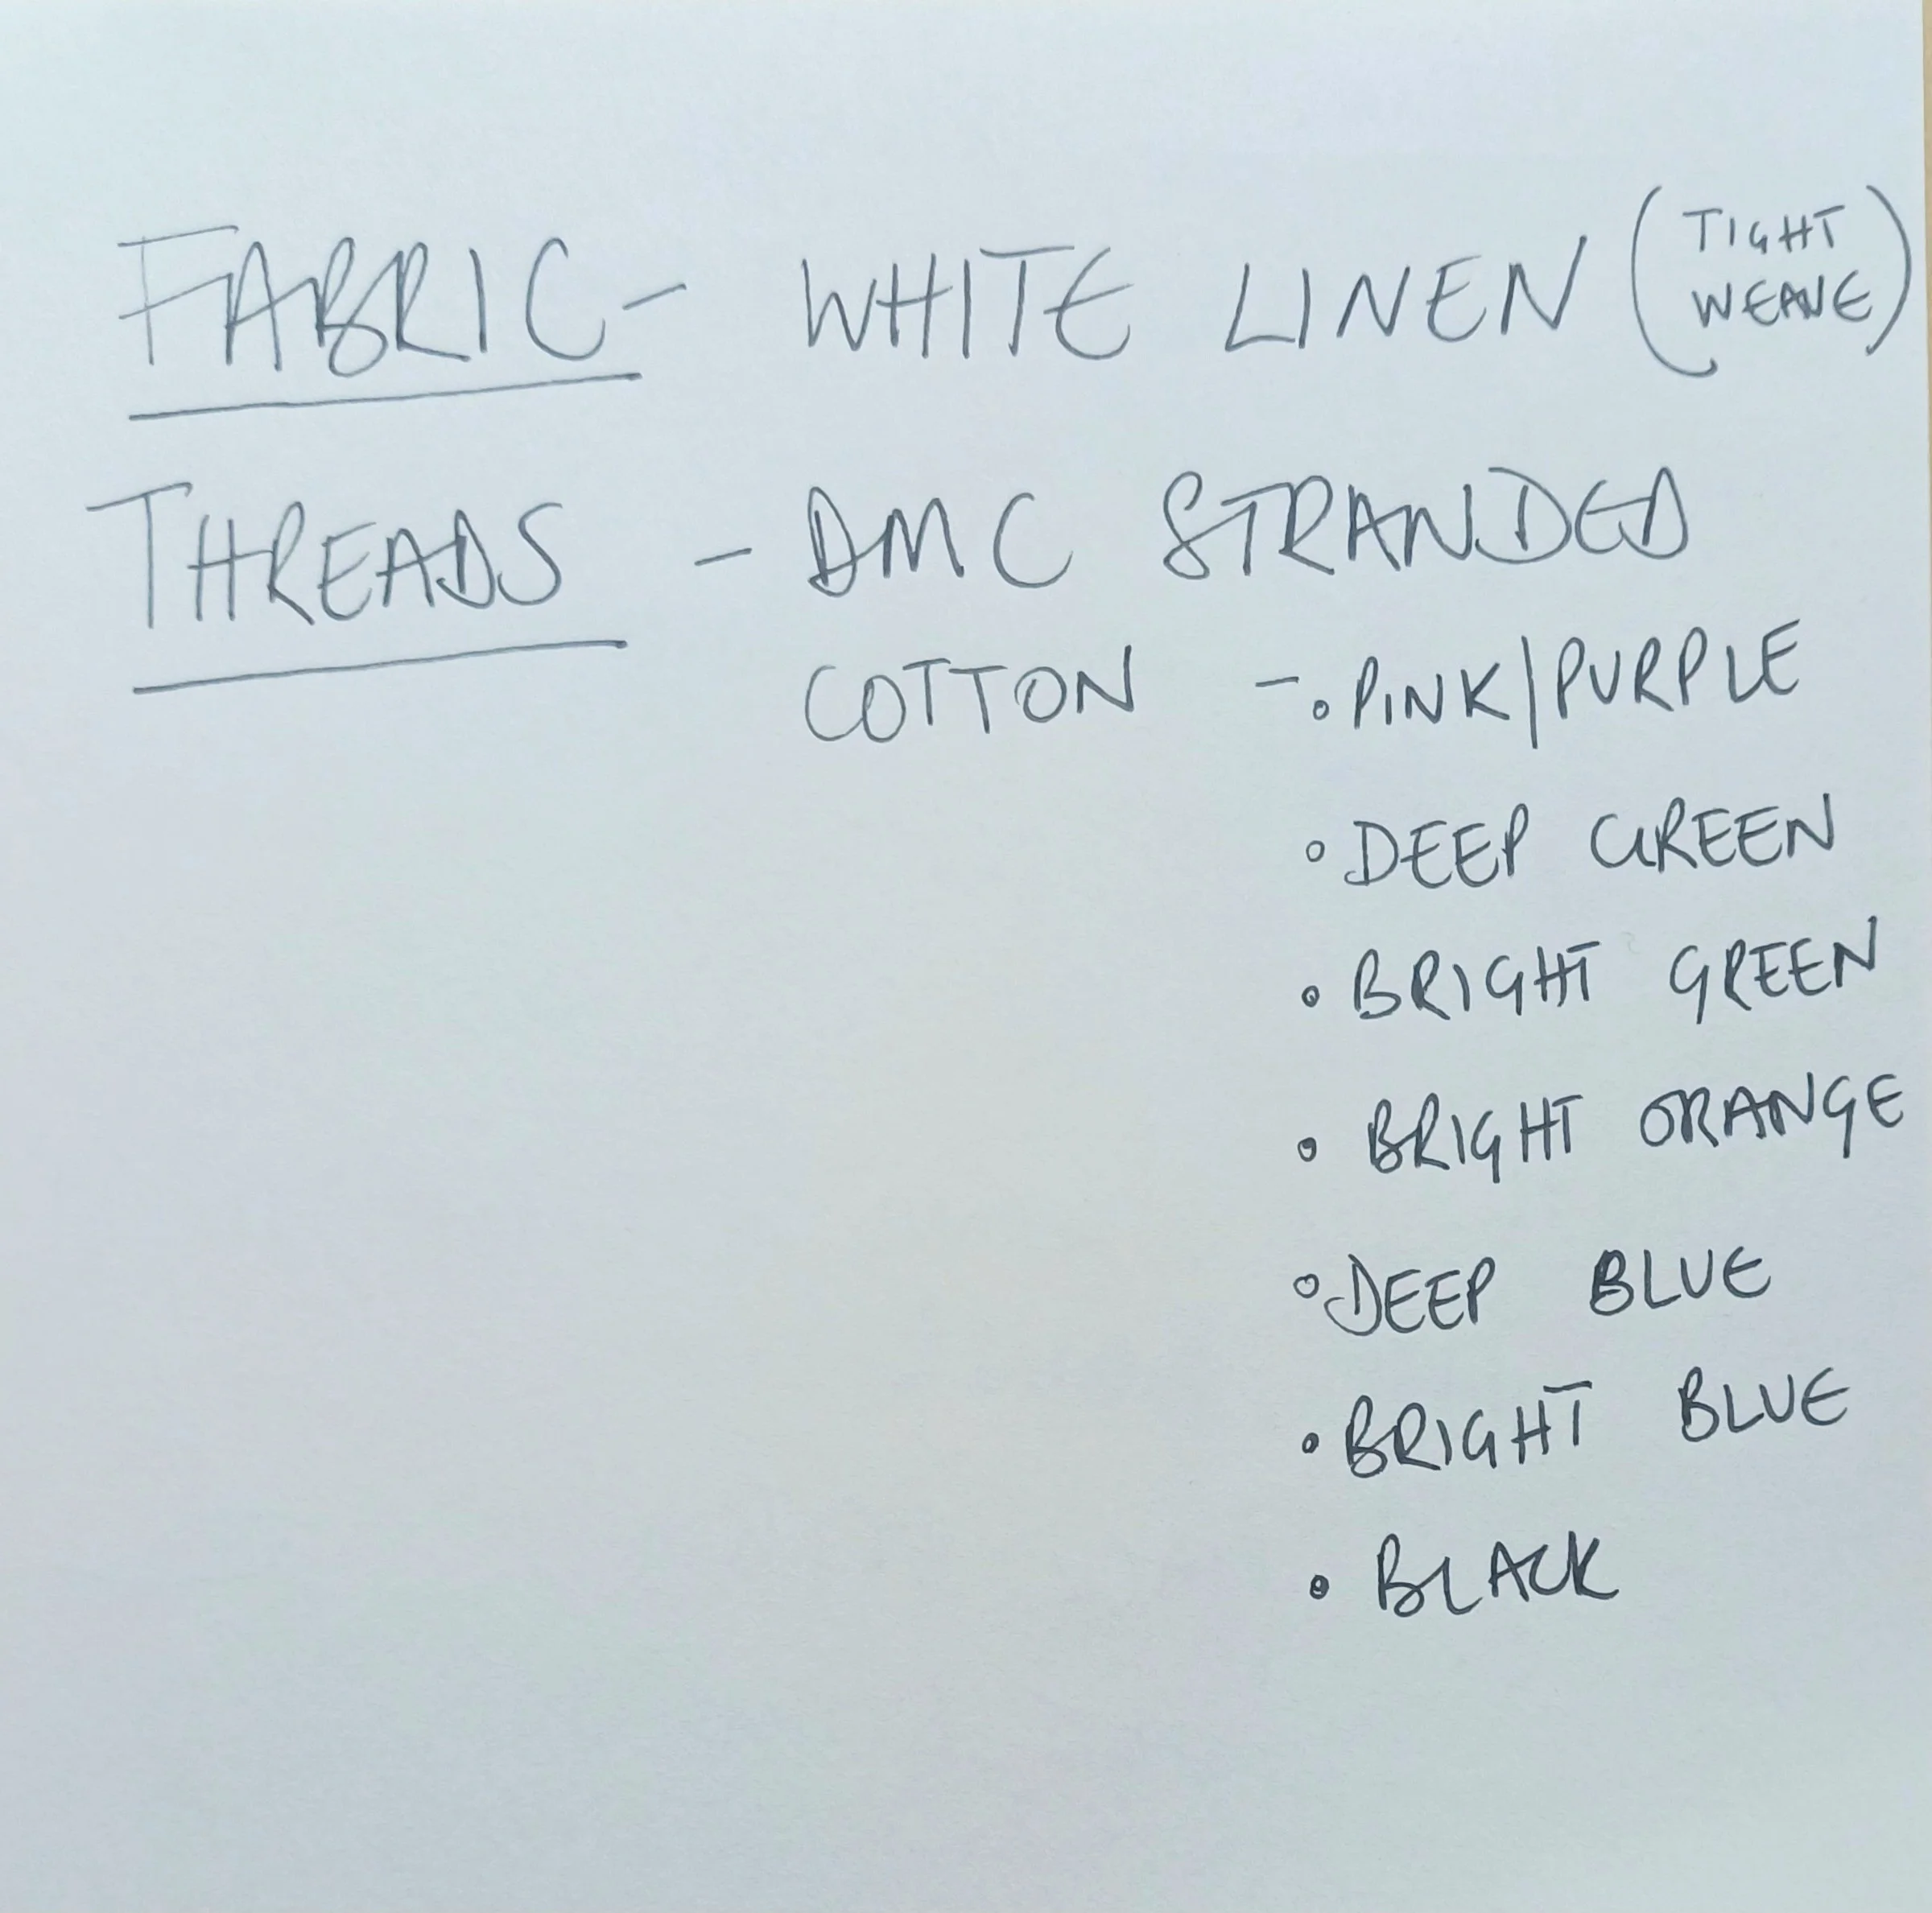 FABRIC - WHITE LINEN (TIGHT WEAVE)
THREADS - DMC STRANDED
COTTON - • PINK/PURPLE
• DEEP GREEN
• BRIGHT GREEN
• BRIGHT ORANGE
• DEEP BLUE
• BRIGHT BLUE
• BLACK